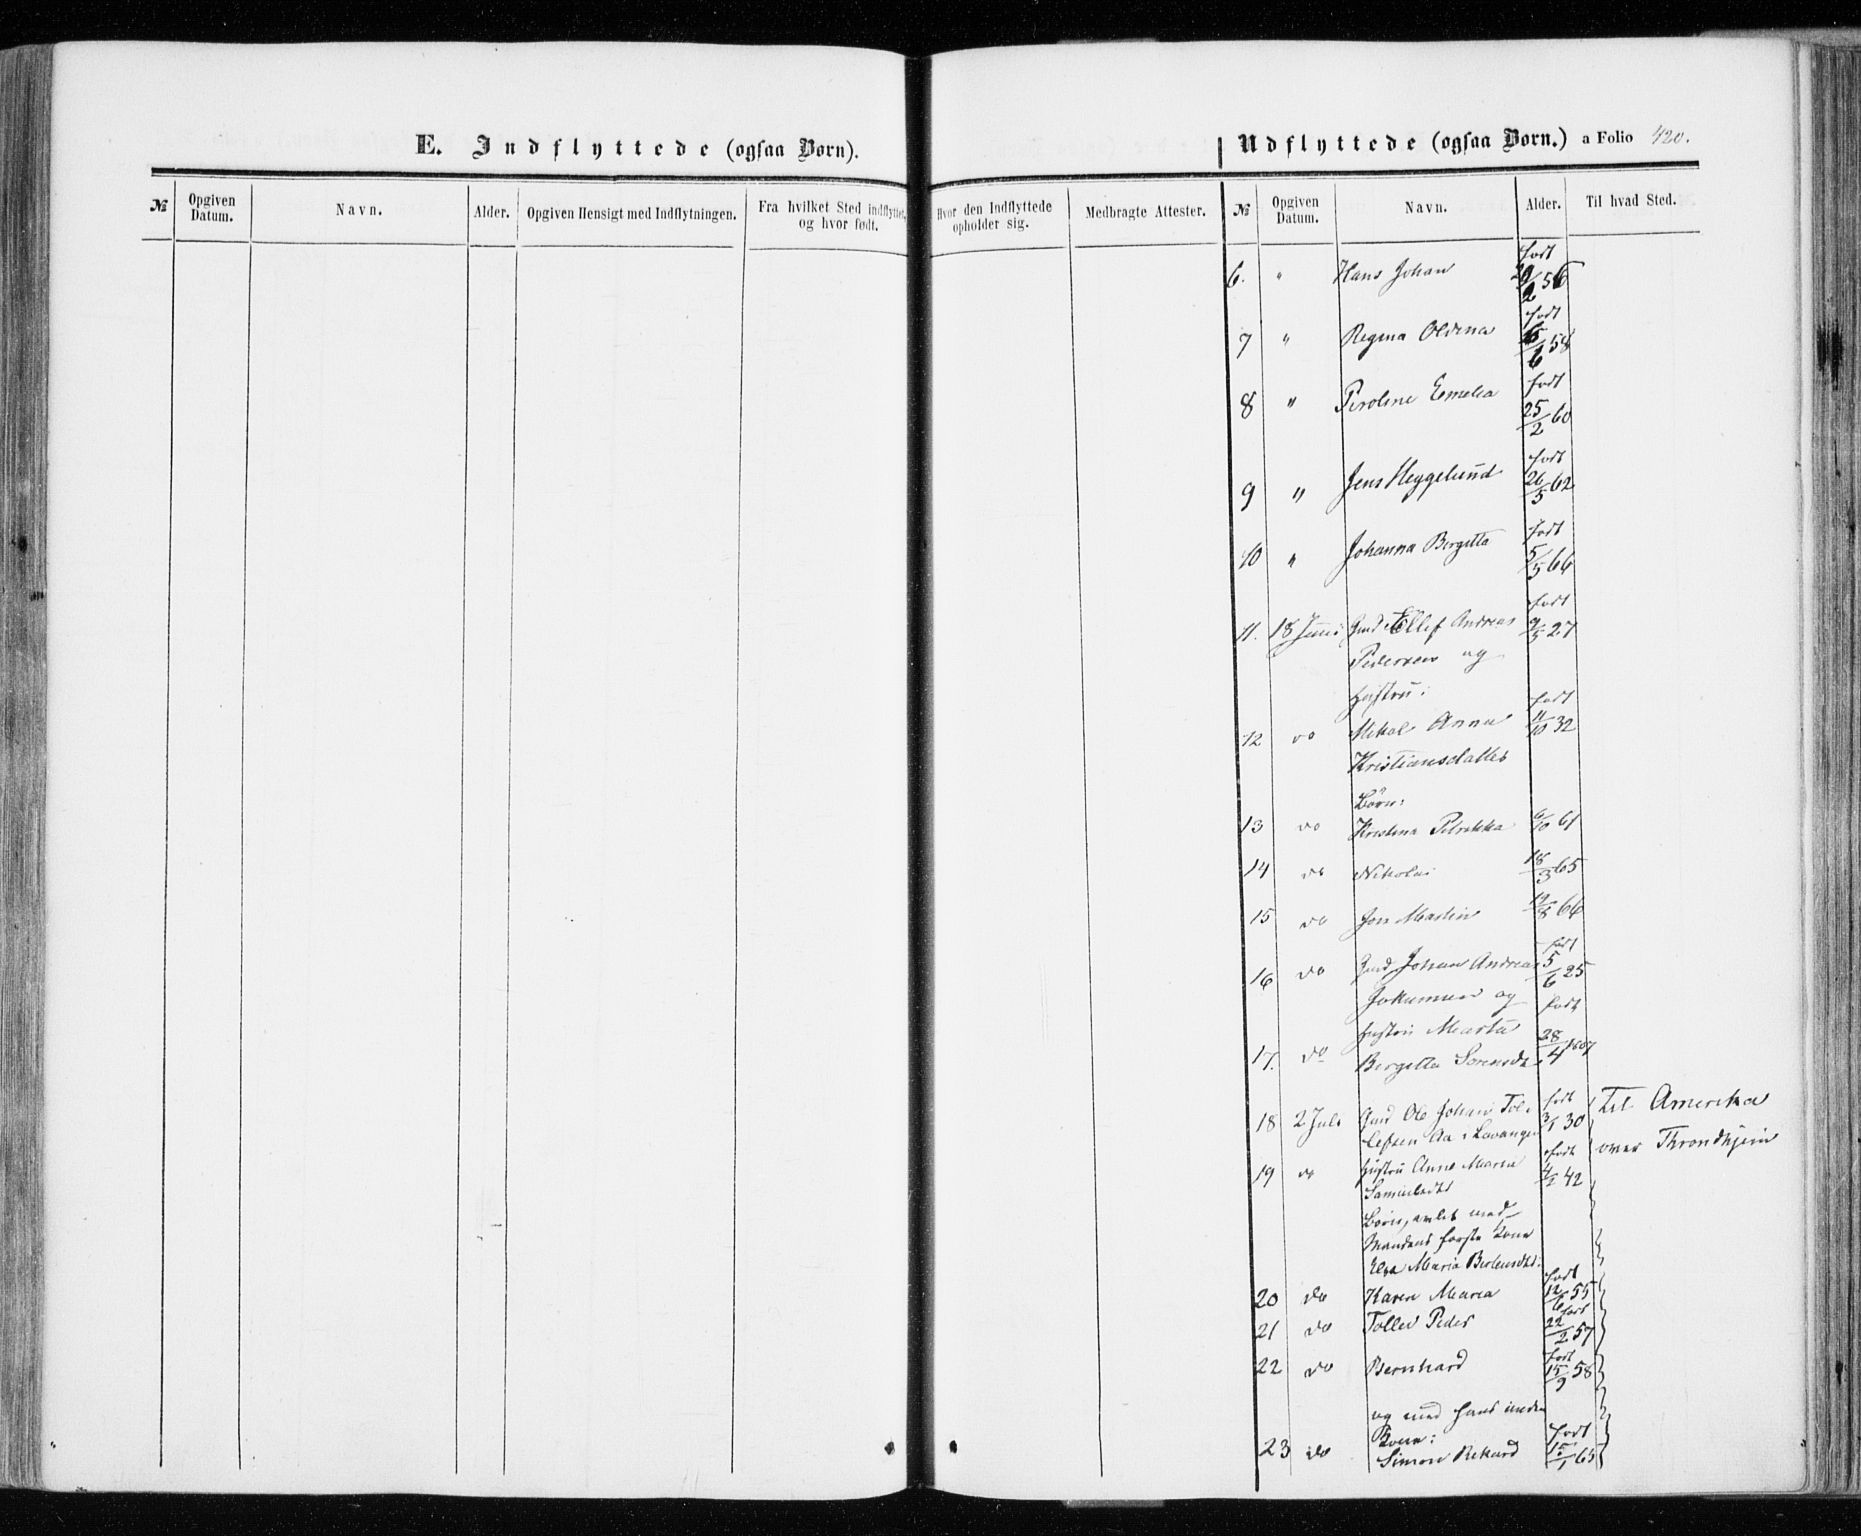 E. Indflyttede (ogsaa Børn).
Udflyttede (ogsaa Børn.) a Folio 420.
№ Opgiven Datum. Navn. Alder. Opgiven Hensigt med Indflytningen. Fra hvilket Sted indflyttet, og hvor født. Hvor den Indflyttede opholder sig. Medbragte Attester. № Opgiven Datum. Navn. Alder. Til hvad Sted.
født
6. " Hans Johan 29/2 56
født
7 " Regina Oldina 58
født
8 " Peroline Emelia 25/2 60
født
9 " Jens Heggelund 26/5 62
født
10 " Johanna Bergitta 5/5 66
født
11. 18 Juni Gmd Ellef Andreas 9/5 27
Pedersen og
Hustru: født
12 do Mekal Anna 11/10 32
Kristiansdatter
Børn:
13 do Kristina Petrikka 6/10 61
14 do Nikolai 18/3 65
15 do Jon Martin 12/8 66
født
16 do Gmd Johan Andreas 5/6 25
Jokumsen og født
Hustru Marta
17. do Bergitta Sørensdt 28/4 1807
født
18 2 Juli Gmd Ole Johan Tol- 3/1 30 til Amerika
lefsen Aa i Lavangen over Throndhjem
født
19 do Hustru Anne Maria 4/2 42
Samuelsdt
Børn, avlet med
Mandens første Kone
Elsa Maria Berteusdtr:
født
20 do Karen Maria 12/6 55
født
21 do Tollev Peder 22/2 57
født
22 do Bernhard 15/9 58
og med hans anden
Kone: født
23 do Simon Rikard 15/1 65